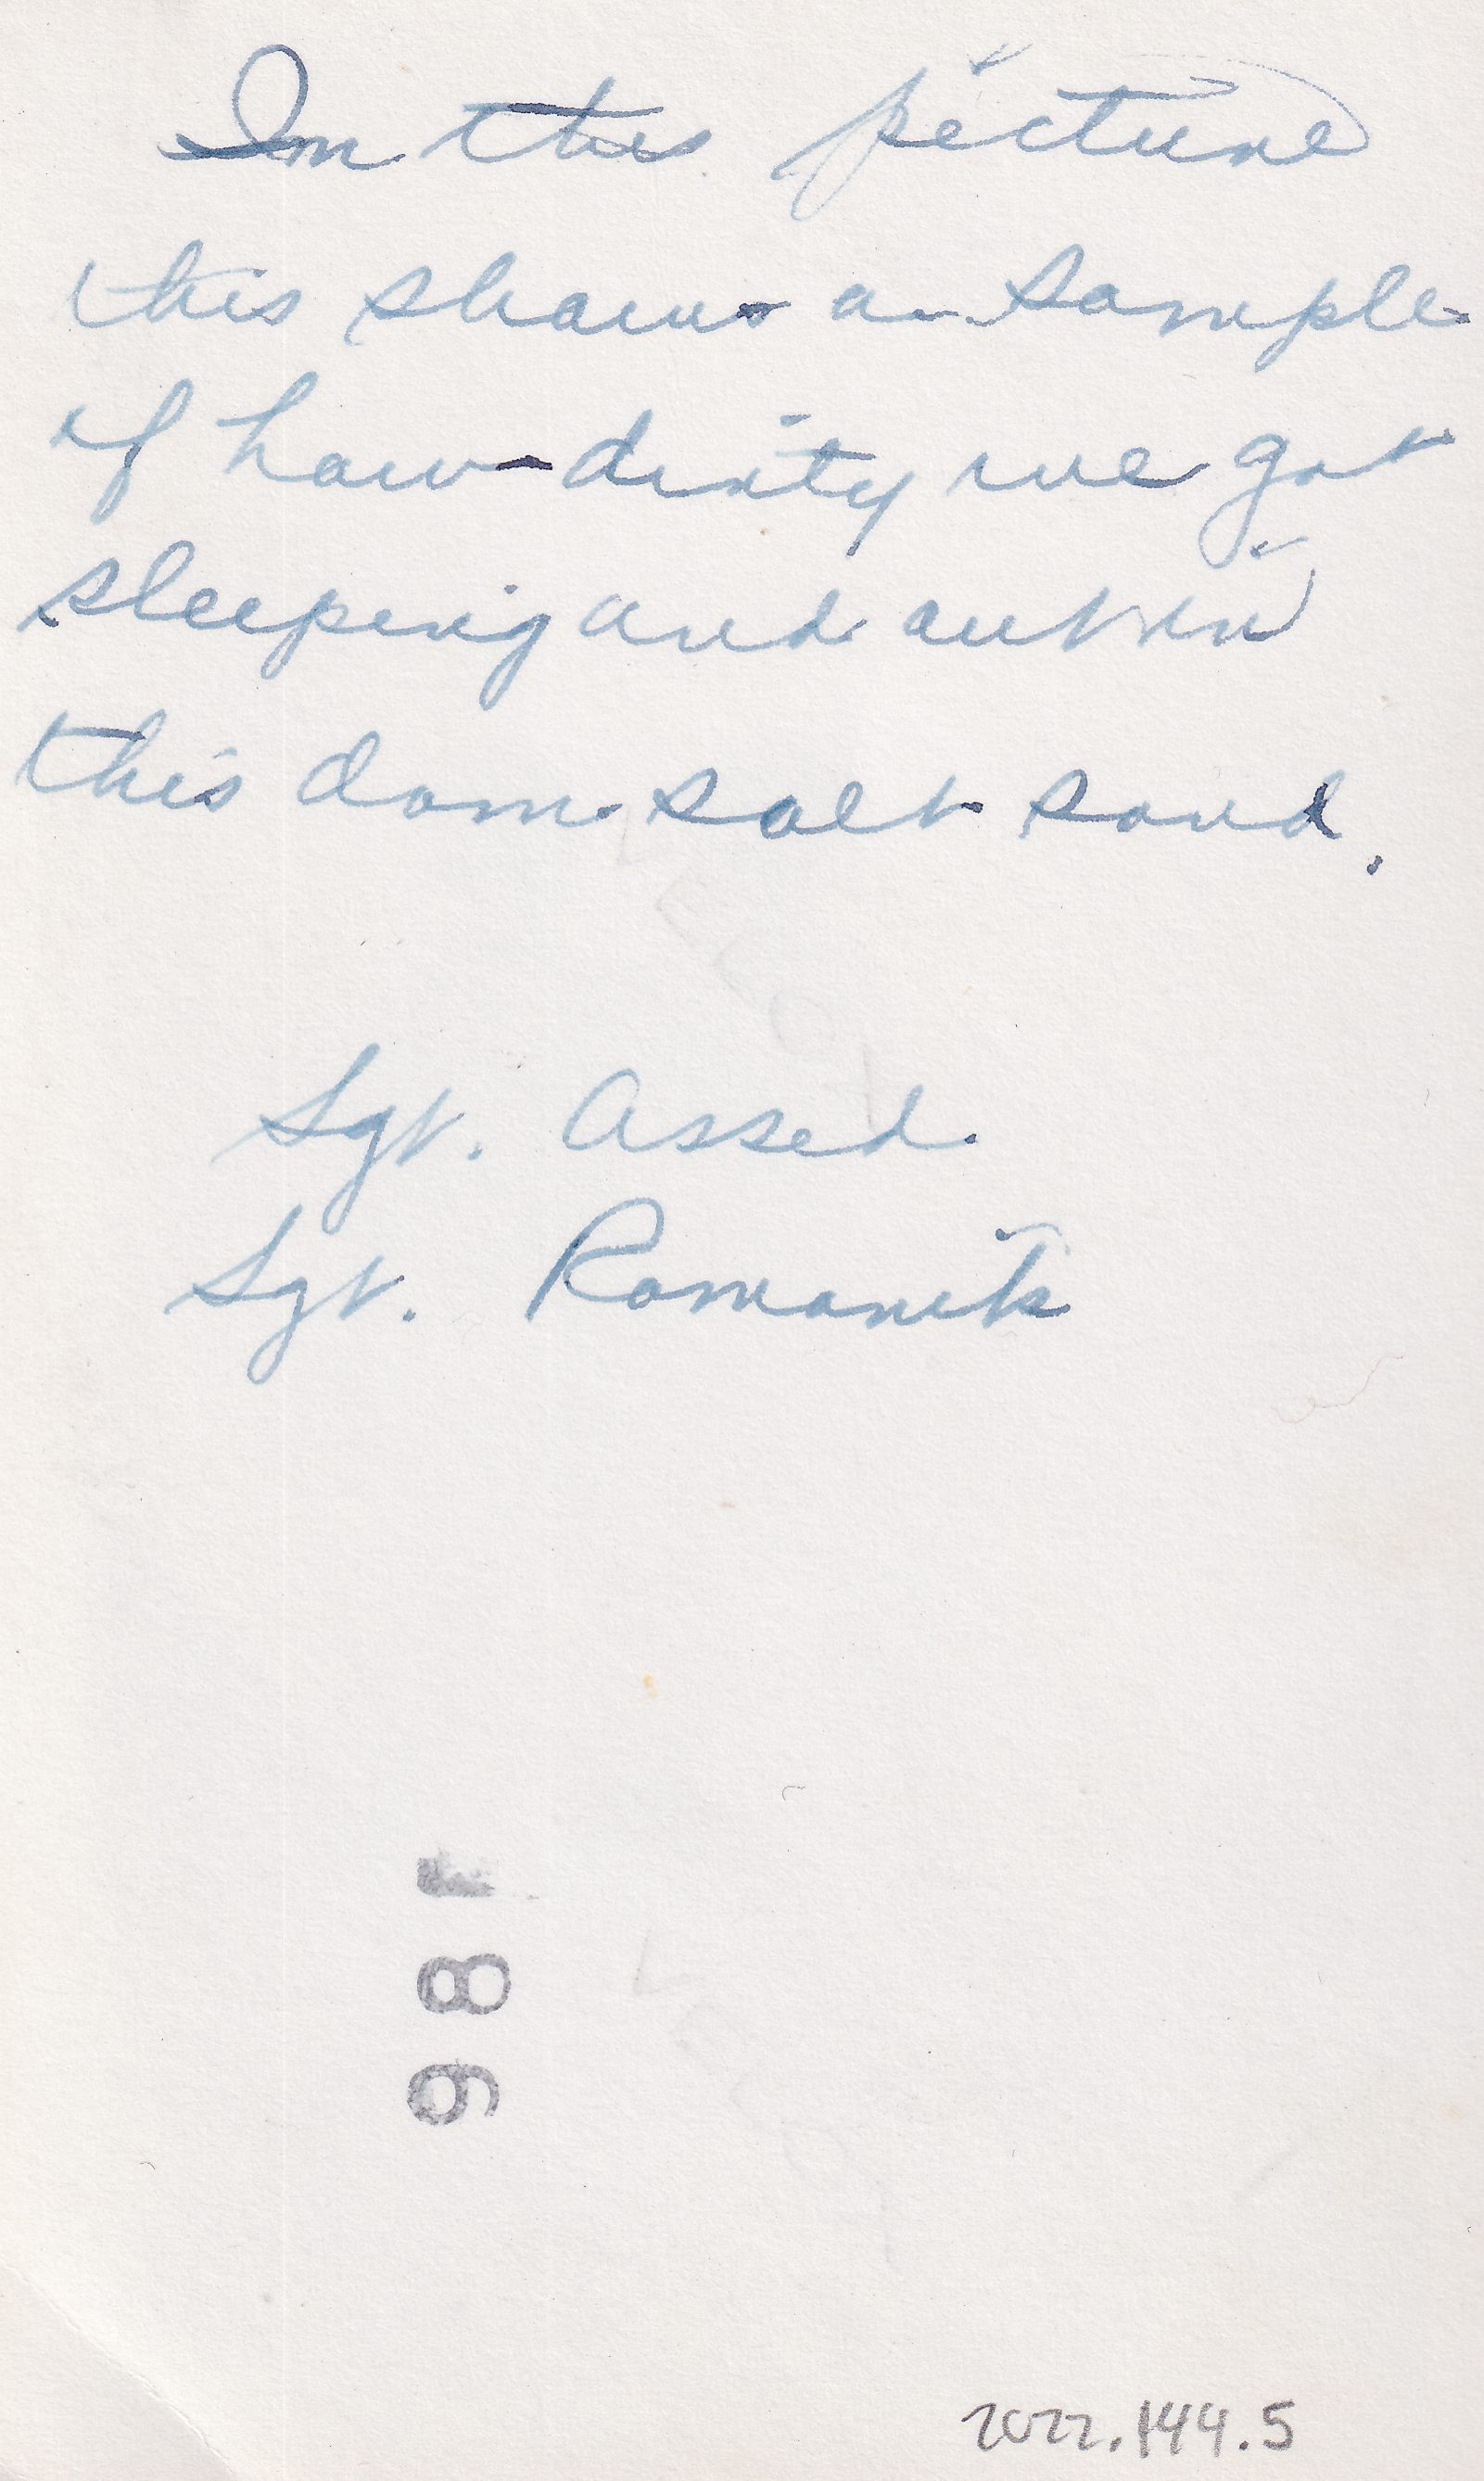 In this picture
this shows a sample
of how dirty we got
sleeping and out in
this dam salt sand.
Sgt. Assed.
Sgt. Romanik
VELOX
981
VELOX
2022.144.5